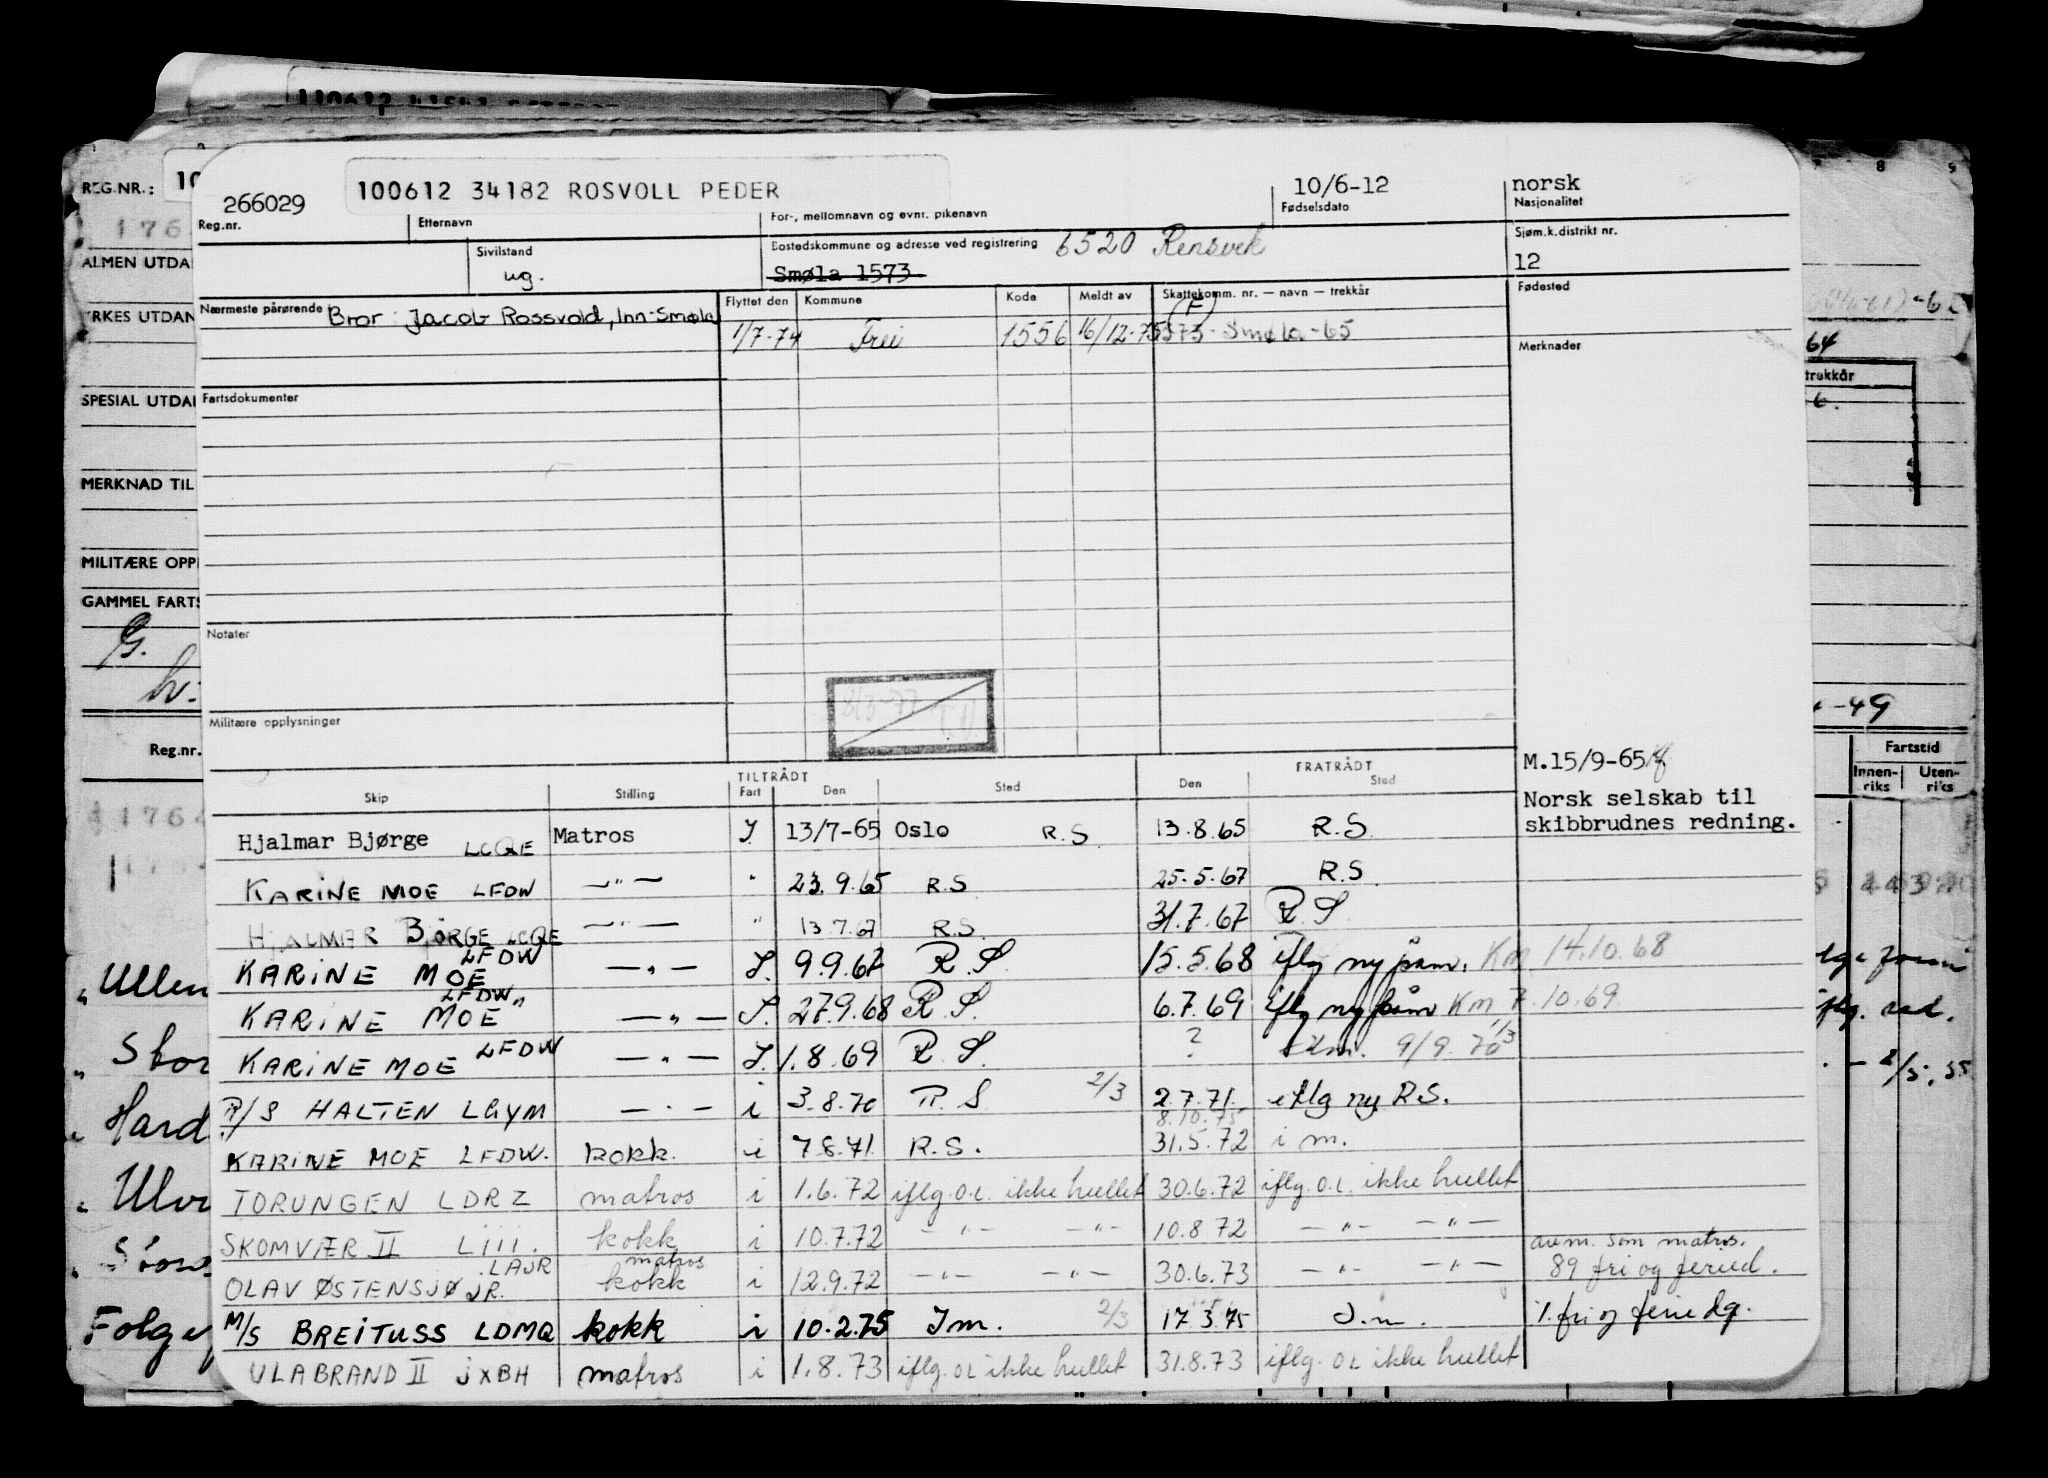 266029 100612 34182 ROSVOLL PEDER 10/6-12 norsk
Reg.nr. Etternavn For-, mellomnavn og evnt. pikenavn Fødselsdato Nasjonalitet
Sivilstand Bostedskommune og adresse ved registrering 6520 Rensvik Sjøm.k.distrikt nr.
ug. Smøla 1573 12
Nærmeste pårørende Bror: Jacob Rossvold, Inn-Smøla Flyttet den Kommune Kode Meldt av Skattekomm. nr. — navn — trekkår Fødested
1/7-74 Frei 1556 16/12-75 1573 - Smøla -65 (F)
Merknader
Fartsdokumenter
Notater
8/3-77
Militære opplysninger
TILTRÅDT FRATRÅDT M.15/9-65
Skip Stilling Fart Den Sted Den Sted
Norsk selskab til
skibbrudnes redning.
Hjalmar Bjørge LCQE Matros I 13/7-65 Oslo R.S. 13.8.65 R.S.
KARINE MOE LFDW —"— " 23.9.65 R.S 25.5.67 R.S.
HJALMAR BJØRGE LCQE —"— " 13.7.67 R.S. 31.7.67 R.S.
KARINE MOE LFDW —"— I. 9.9.67 R.S. 15.5.68 iflg ny påm. Km 14.10.68
KARINE MOE LFDW —"— I. 27.9.68 R.S. 6.7.69 iflg ny påm Km 7.10.69
KARINE MOE LFDW —"— I. 1.8.69 R.S. ? Km. 9/9.70
R/S HALTEN LGYM —"— i 3.8.70 R.S 2/3 2.7.71. iflg ny R.S.
8.10.75
KARINE MOE LFDW. kokk. i 7.8.71. R.S. 31.5.72 i m.
TORUNGEN LDRZ matros i 1.6.72 iflg. o.l. ikke hullet 30.6.72 iflg. o.l. ikke hullet
SKOMVÆR II Liii. kokk i 10.7.72 —"— —"— 10.8.72 —"— —"—
OLAV ØSTENSJØ JR. LAJR matros kokk i 12.9.72 —"— —"— 30.6.73 —"— —"— avm. som matros. 89 fri og feried.
M/S BREITUSS LDMQ kokk i 10.2.75 Im. 2/3 17.3.75 I.m. 1. fri og ferie dg.
ULABRAND II JXBH matros i 1.8.73 iflg. ol ikke hullet 31.8.73 iflg. ol ikke hullet
REG.NR.: 10
1764
ALMEN UTDA
YRKES UTDAN
SPESIAL UTDA
MERKNAD TIL
MILITÆRE OPP
GAMMEL FARTS
G.
Reg.nr.
Ullen
Stor
Hard
Ulv
Folge
64
trekkår
-49
Fartstid
Innen-
riks
Uten-
riks
- 2/5.55